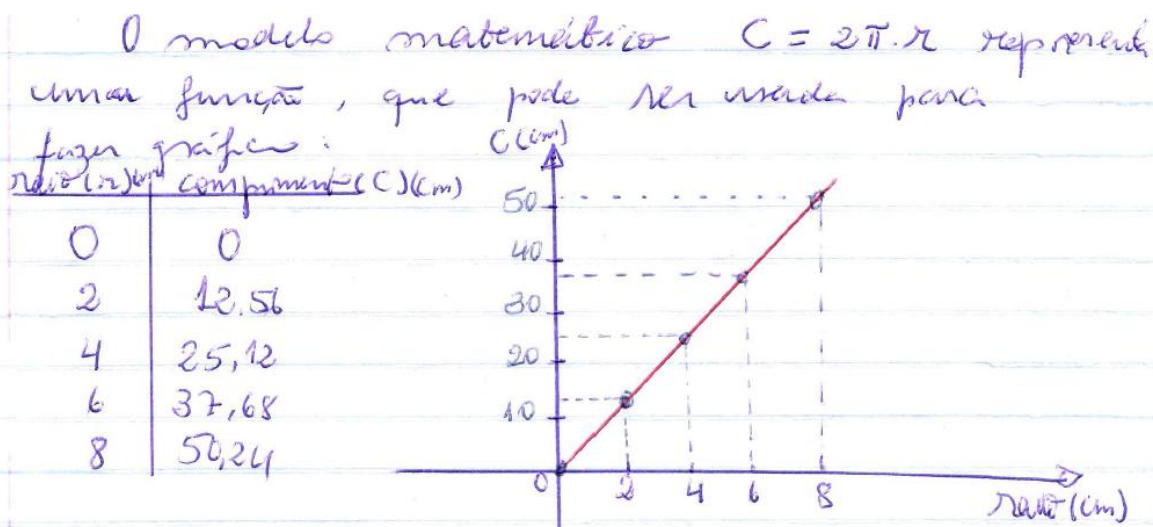 O modelo matemático C = 2π.r representa
uma função, que pode ser usada para
fazer gráfico:
raio (r) cm comprimento (C) (cm)
0 0
2 12.56
4 25,12
6 37,68
8 50,24
C (cm)
50
40
30
20
10
0 2 4 6 8
raio (cm)